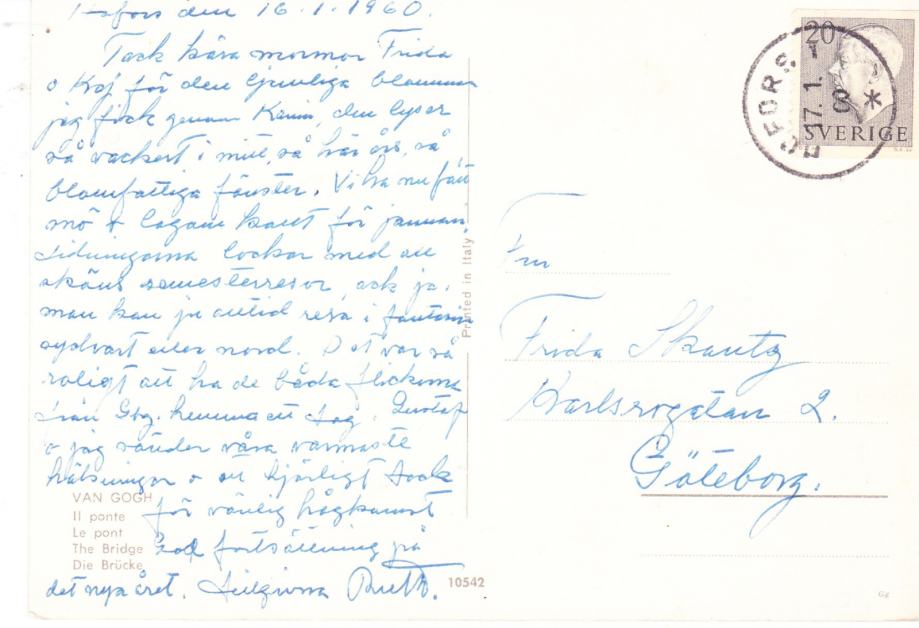 den 16.1.1960.
Tack kära mormor Frida
o Kaj för den ljuvliga blomman
jag fick genom Karin, den lyser
så vackert i mitt, så här års, så
blomfattiga fönster. Vi ha nu fått
snö o lagom kallt för januari.
Tidningarna lockar med att
sköna semesterresor, ack ja,
man kan ju alltid resa i fantasin
sydvart eller nord. Det var så
roligt att ha de båda flickorna
från Gbg. hemma ett tag. Gustaf
o jag sänder våra varmaste
hälsningar o ett hjärtligt tack
för vänlig hågkomst
God fortsättning på
det nya året. Tillgivna Ruth.
VAN GOGH
Il ponte
Le pont
The Bridge
Die Brücke
10542
Printed in Italy
20
SVERIGE
HOFORS 1
17.1.
60
*
Fru
Frida Skantz
Karlsrogatan 2.
Göteborg.